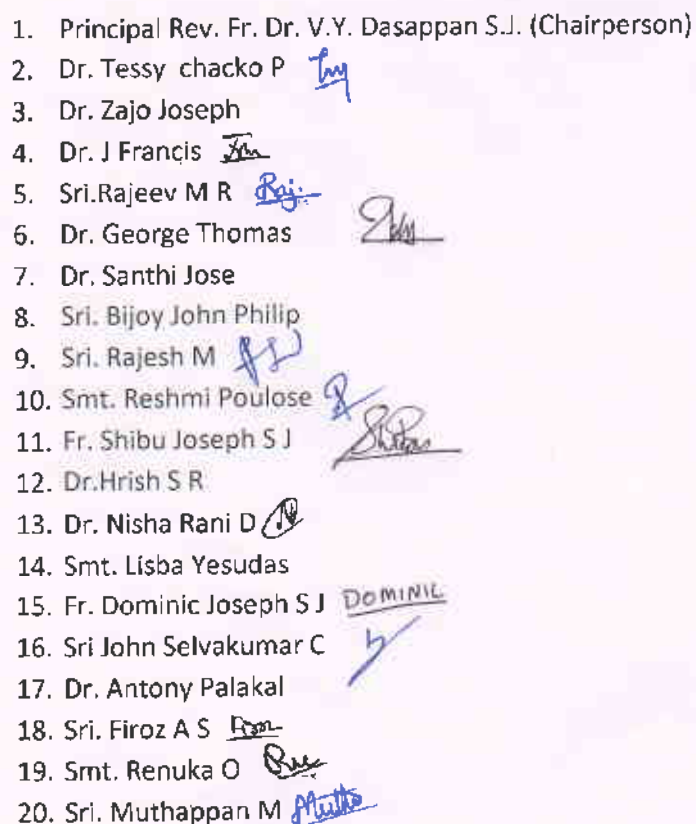 1. Principal Rev. Fr. Dr. V.Y. Dasappan S.J. (Chairperson)
2. Dr. Tessy chacko P
3. Dr. Zajo Joseph
4. Dr. J Francis
5. Sri.Rajeev M R Raj.
6. Dr. George Thomas
7. Dr. Santhi Jose
8. Sri. Bijoy John Philip
9. Sri. Rajesh M
10. Smt. Reshmi Poulose
11. Fr. Shibu Joseph S J
12. Dr.Hrish S R
13. Dr. Nisha Rani D
14. Smt. Lisba Yesudas
15. Fr. Dominic Joseph S J DOMINIC
16. Sri John Selvakumar C
17. Dr. Antony Palakal
18. Sri. Firoz A S
19. Smt. Renuka O
20. Sri. Muthappan M